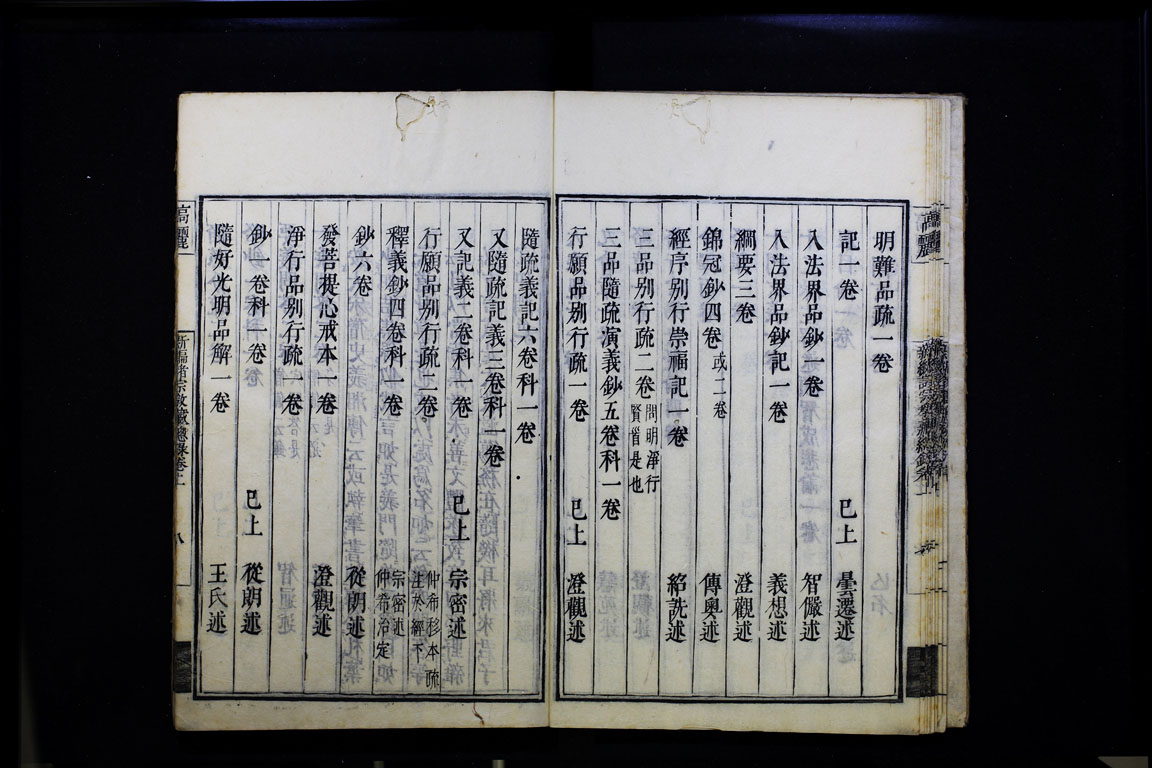 明難品疏一卷
記一卷　已上　曇遷述
入法界品鈔一卷　智儼述
入法界品鈔記一卷　義想述
綱要三卷　澄觀述
錦冠鈔四卷或二卷　傳奧述
經序別行崇福記一卷　紹詵述
三品別行疏二卷問明淨行賢首是也
三品隨疏演義鈔五卷科一卷
行願品別行疏一卷　已上　澄觀述
隨疏義記六卷科一卷
又隨疏記義三卷科一卷
又記義二卷科一卷　已上　宗密述
行願品別行疏二卷　仲希移本疏注於經下
釋義鈔四卷科一卷　宗密述仲希治定
鈔六卷　從朗述
發菩提心戒本一卷　澄觀述
淨行品別行疏一卷
鈔一卷科一卷　已上　從朗述
隨好光明品解一卷　王氏述
高麗
新編諸宗教藏總錄卷上
八